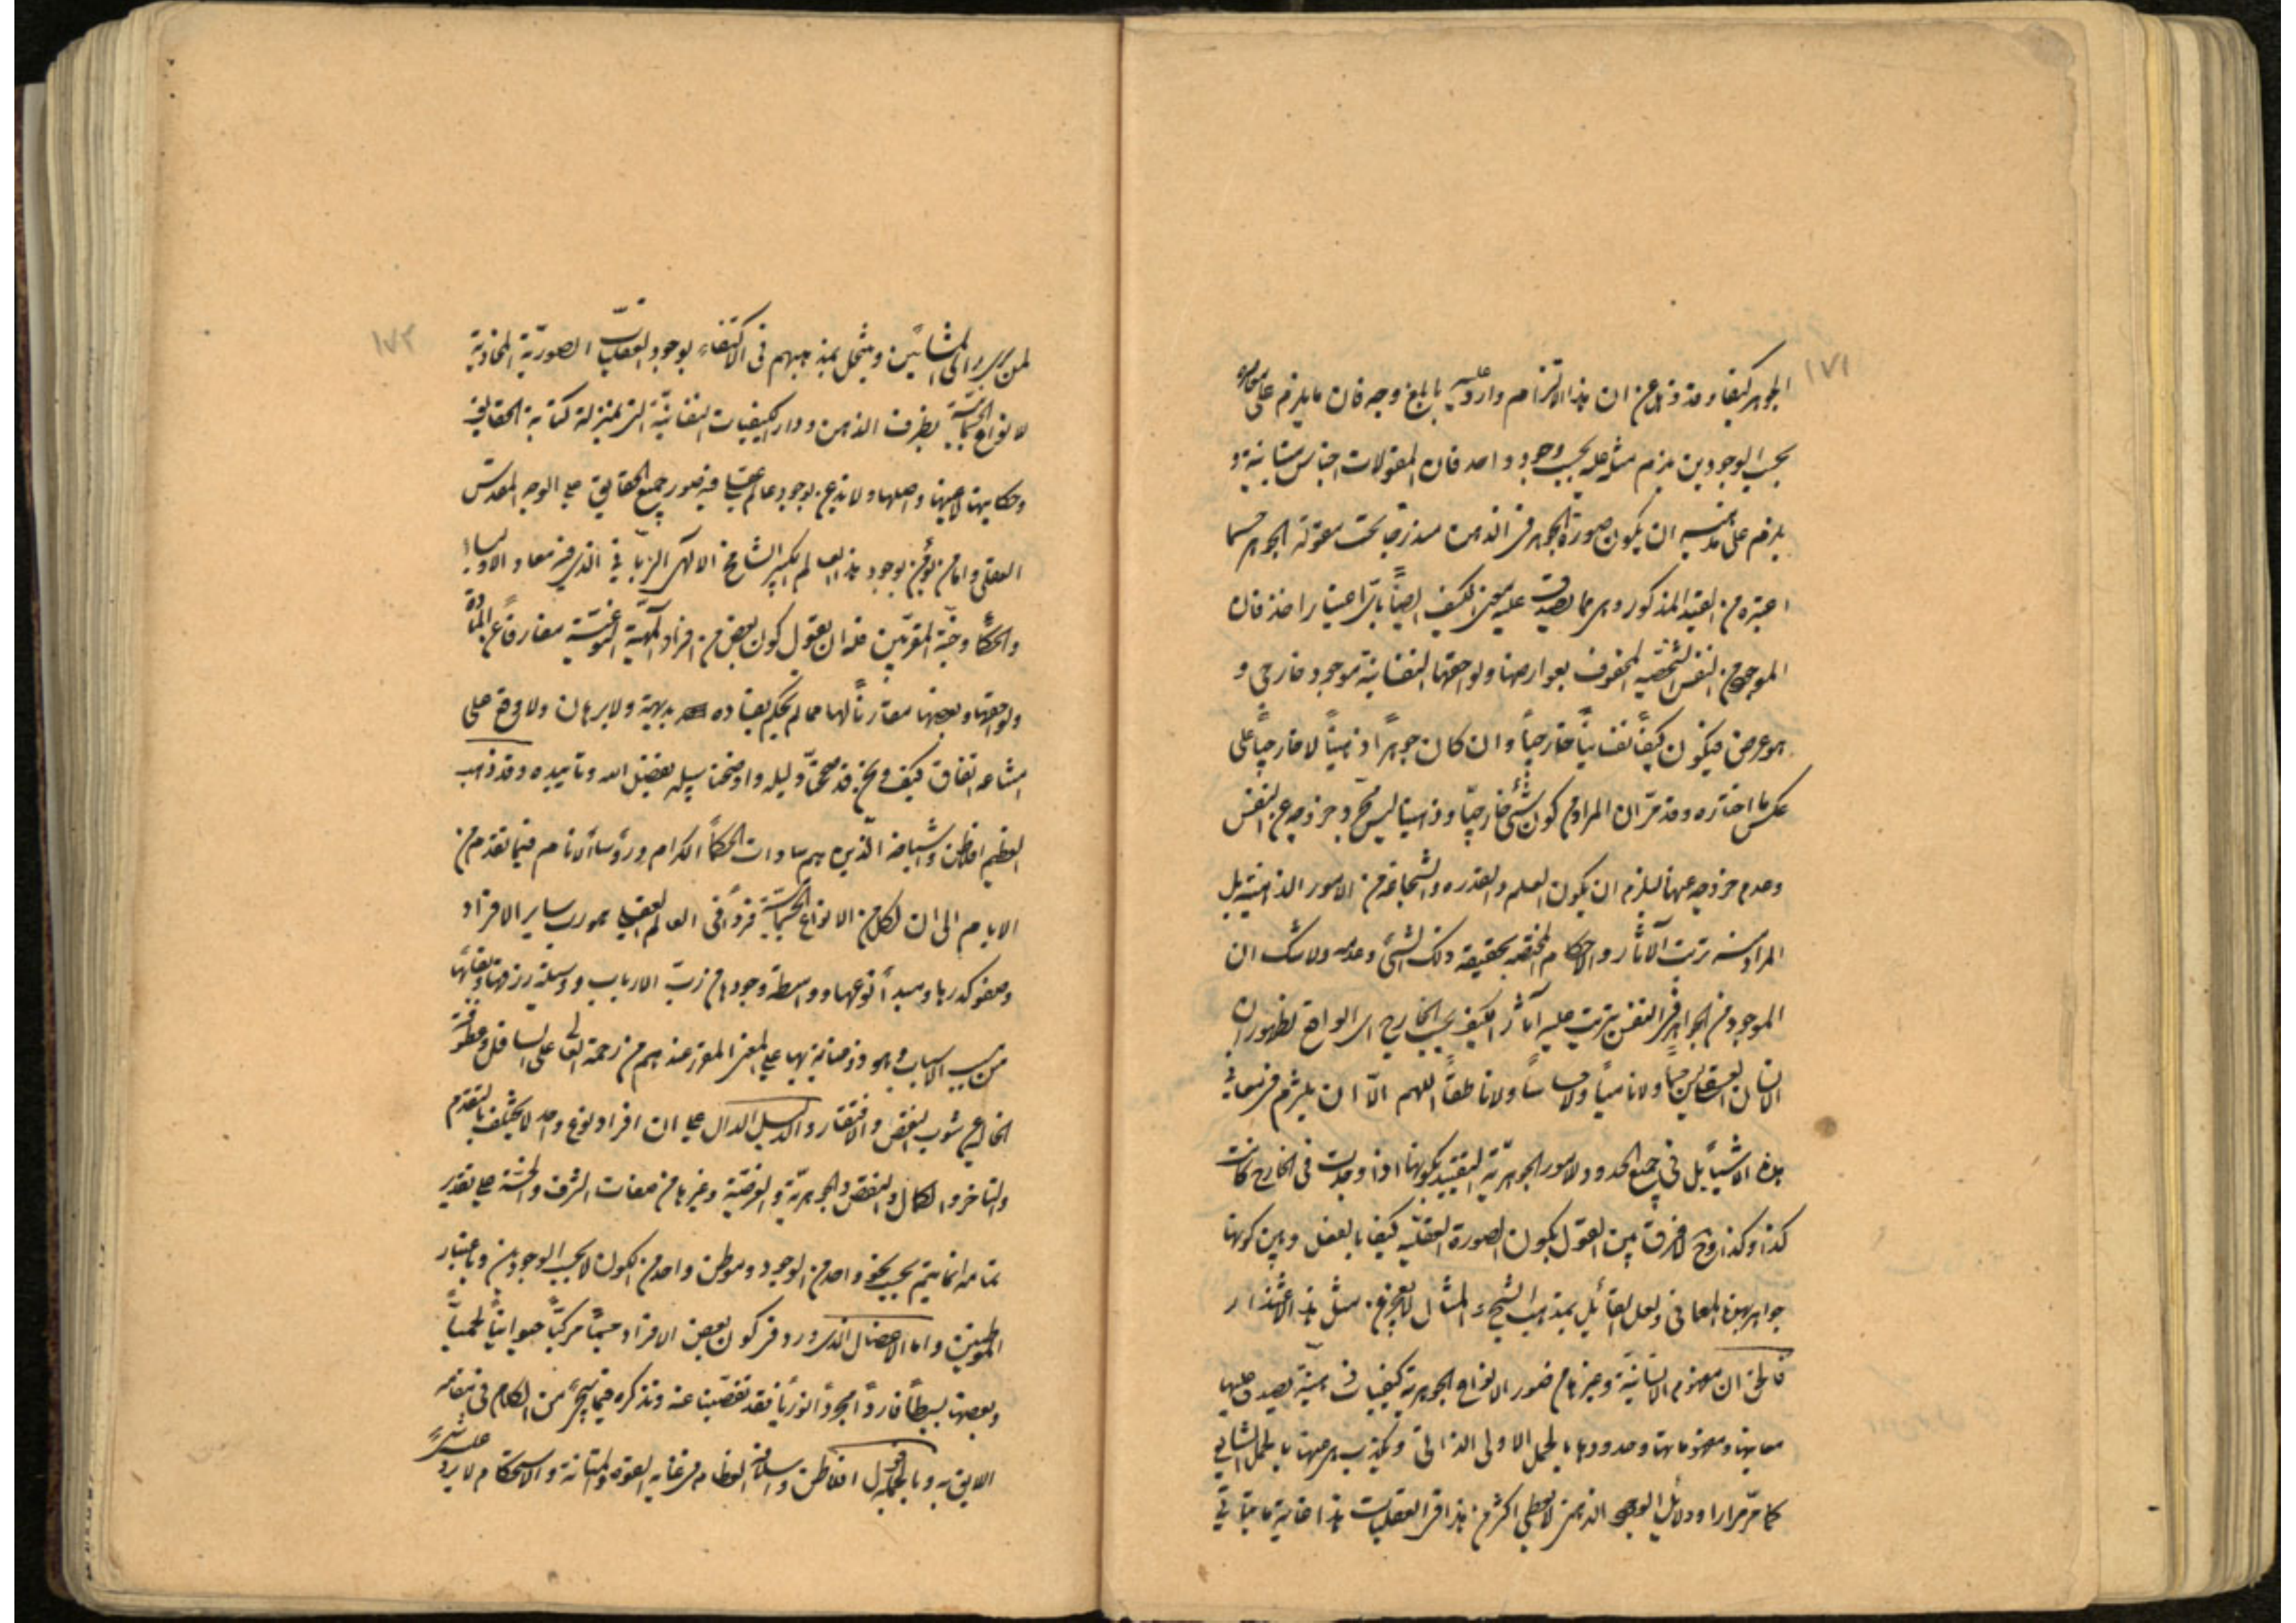 ١٧١
الجوهر كيفا وقد ذهل عن ان هذا الالتزام وارد عليه بابلغ وجه فان ما يلزم على معاصره
بحسب الوجودين يلزم مثله عليه بحسب وجود واحد فان المقولات اجناس متباينة و
يلزم على مذهبه ان يكون صورة الجوهر فى الذهن مندرجة تحت مقولة الجوهر حسبما
اعتبره من القيد المذكور وهى مما يصدق عليه معنى الكيف ايضاً باى اعتبار اخذ فان
الموجود من النفس الشخصية المحفوف بعوارضها ولواحقها النفسانية موجود خارجى و
هو عرض فيكون كيفاً نفسانياً خارجياً وان كان جوهراً ذهنياً لا خارجياً على
عكس ما اختاره وقد مرّ ان المراد من كون شئ خارجيّا وذهنيا ليس مجرد خروجه عن النفس
وعدم خروجه عنها ليلزم ان يكون العلم والقدره والشجاعة من الامور الذهنية بل
المراد منه ترتب الآثار والاحكام المختصة بحقيقة ذلك الشئ وعدمه ولا شك ان
الموجود من الجواهر فى النفس يترتب عليه آثار الكيف بحسب الخارج اى الواقع لظهور ان
الانسان العقلى ليس حياً ولا نامياً ولا حساساً ولا ناطقاً اللهم الاّ ان يلتزم فى معانى
هذه الاشيآء بل فى جميع الحدود لامور الجوهريّة التقييد بكونها اذا وجدت فى الخارج كانت
كذا وكذا وح لا فرق بين القول بكون الصورة العقليّه كيفا بالفعل وبين كونها
جواهر بهذه المعانى ولعل القائل بمذهب الشبح والمثال لا يعجز عن مثل هذا الاعتذار
فالحق ان مفهوم الانسانيّة وغيرها من صور الانواع الجوهرية كيفيات ذهنيّة يصدق عليها
معانيها ومفهوماتها وحدودها بالحمل الاولى الذاتى ويكذب هى عنها بالحمل الشايع
كما مرّ مرارا ودلائل الوجود الذهنى لا يعطى اكثر من هذا فى العقليات هذا غاية ما يتأتى
١٧٢
لمن يرى راى المشائين وينتحل بمذهبهم فى الاكتفاء بوجود العقليات الصوريّة المحاذية
لانواع الجسمانيّة بظرف الذهن ودار الكيفيات النفسانيّة التى بمنزلة كتابة الحقايق
وحكايتها لا عينها واصلها ولا يذعن بوجود عالم عقلى فيه صور جميع الحقايق على الوجه المقدس
العقلى واما من يؤمن بوجود هذا العالم الكبير الشامخ الالهى الربّانى الذى فيه معاد الاولياء
والحكمآء وجنّة المقربّين فله ان يقول كون بعض من افراد الماهيّة النوعيّة مفارقاً عن المادة
ولواحقها وبعضها مقارناً لها مما لم يحكم بفساده بديهية ولا برهان ولا وقع على
امتناعه اتفاق كيف ونحن قد صححنا دليله واوضحنا سبيله بفضل الله وتأييده وقد ذهب
العظيم افلاطن واشياخه الذين هم سادات الحكمآء الكرام ورؤسآء الانام فيما تقدم من
الايام الى ان لكل من الانواع الجسمانيّة فرداً فى العالم العقلى هو رب ساير الافراد
وصفو كدرها ومبدأ نوعها وواسطة وجودها من ربّ الارباب ووسيلة رزقها وبقائها
من مسبب الاسباب وهو ذو عناية بها على المعنى المقرر عندهم من رحمة العالى على السافل وعطوفته
الخالى عن شوب النقص والافتقار والدليل الدال على ان افراد نوع واحد لا يختلف بالتقدم
والتاخر والكمال والنقص والجوهريّة والعرضيّة وغيرها من صفات الشرف والخسّة على تقدير
تمامه انما يتم بحسب نحو واحد من الوجود وموطن واحد من الكون لا بحسب الوجودين وباعتبار
الموطنين واما الاعضال الذى ورد فى كون بعض الافراد جسماً مركبّاً حيوانيّاً لحميّاً
وبعضها بسيطاً فارداً مجرداً نورياً فقد تفصّينا عنه ونذكره فيما سيجئ من الكلام فى مقامه
اللايق به وبالجملة قول افلاطن واسلافه العظام فى غاية القوة والمتانة والاستحكام لا يرد عليه شئ